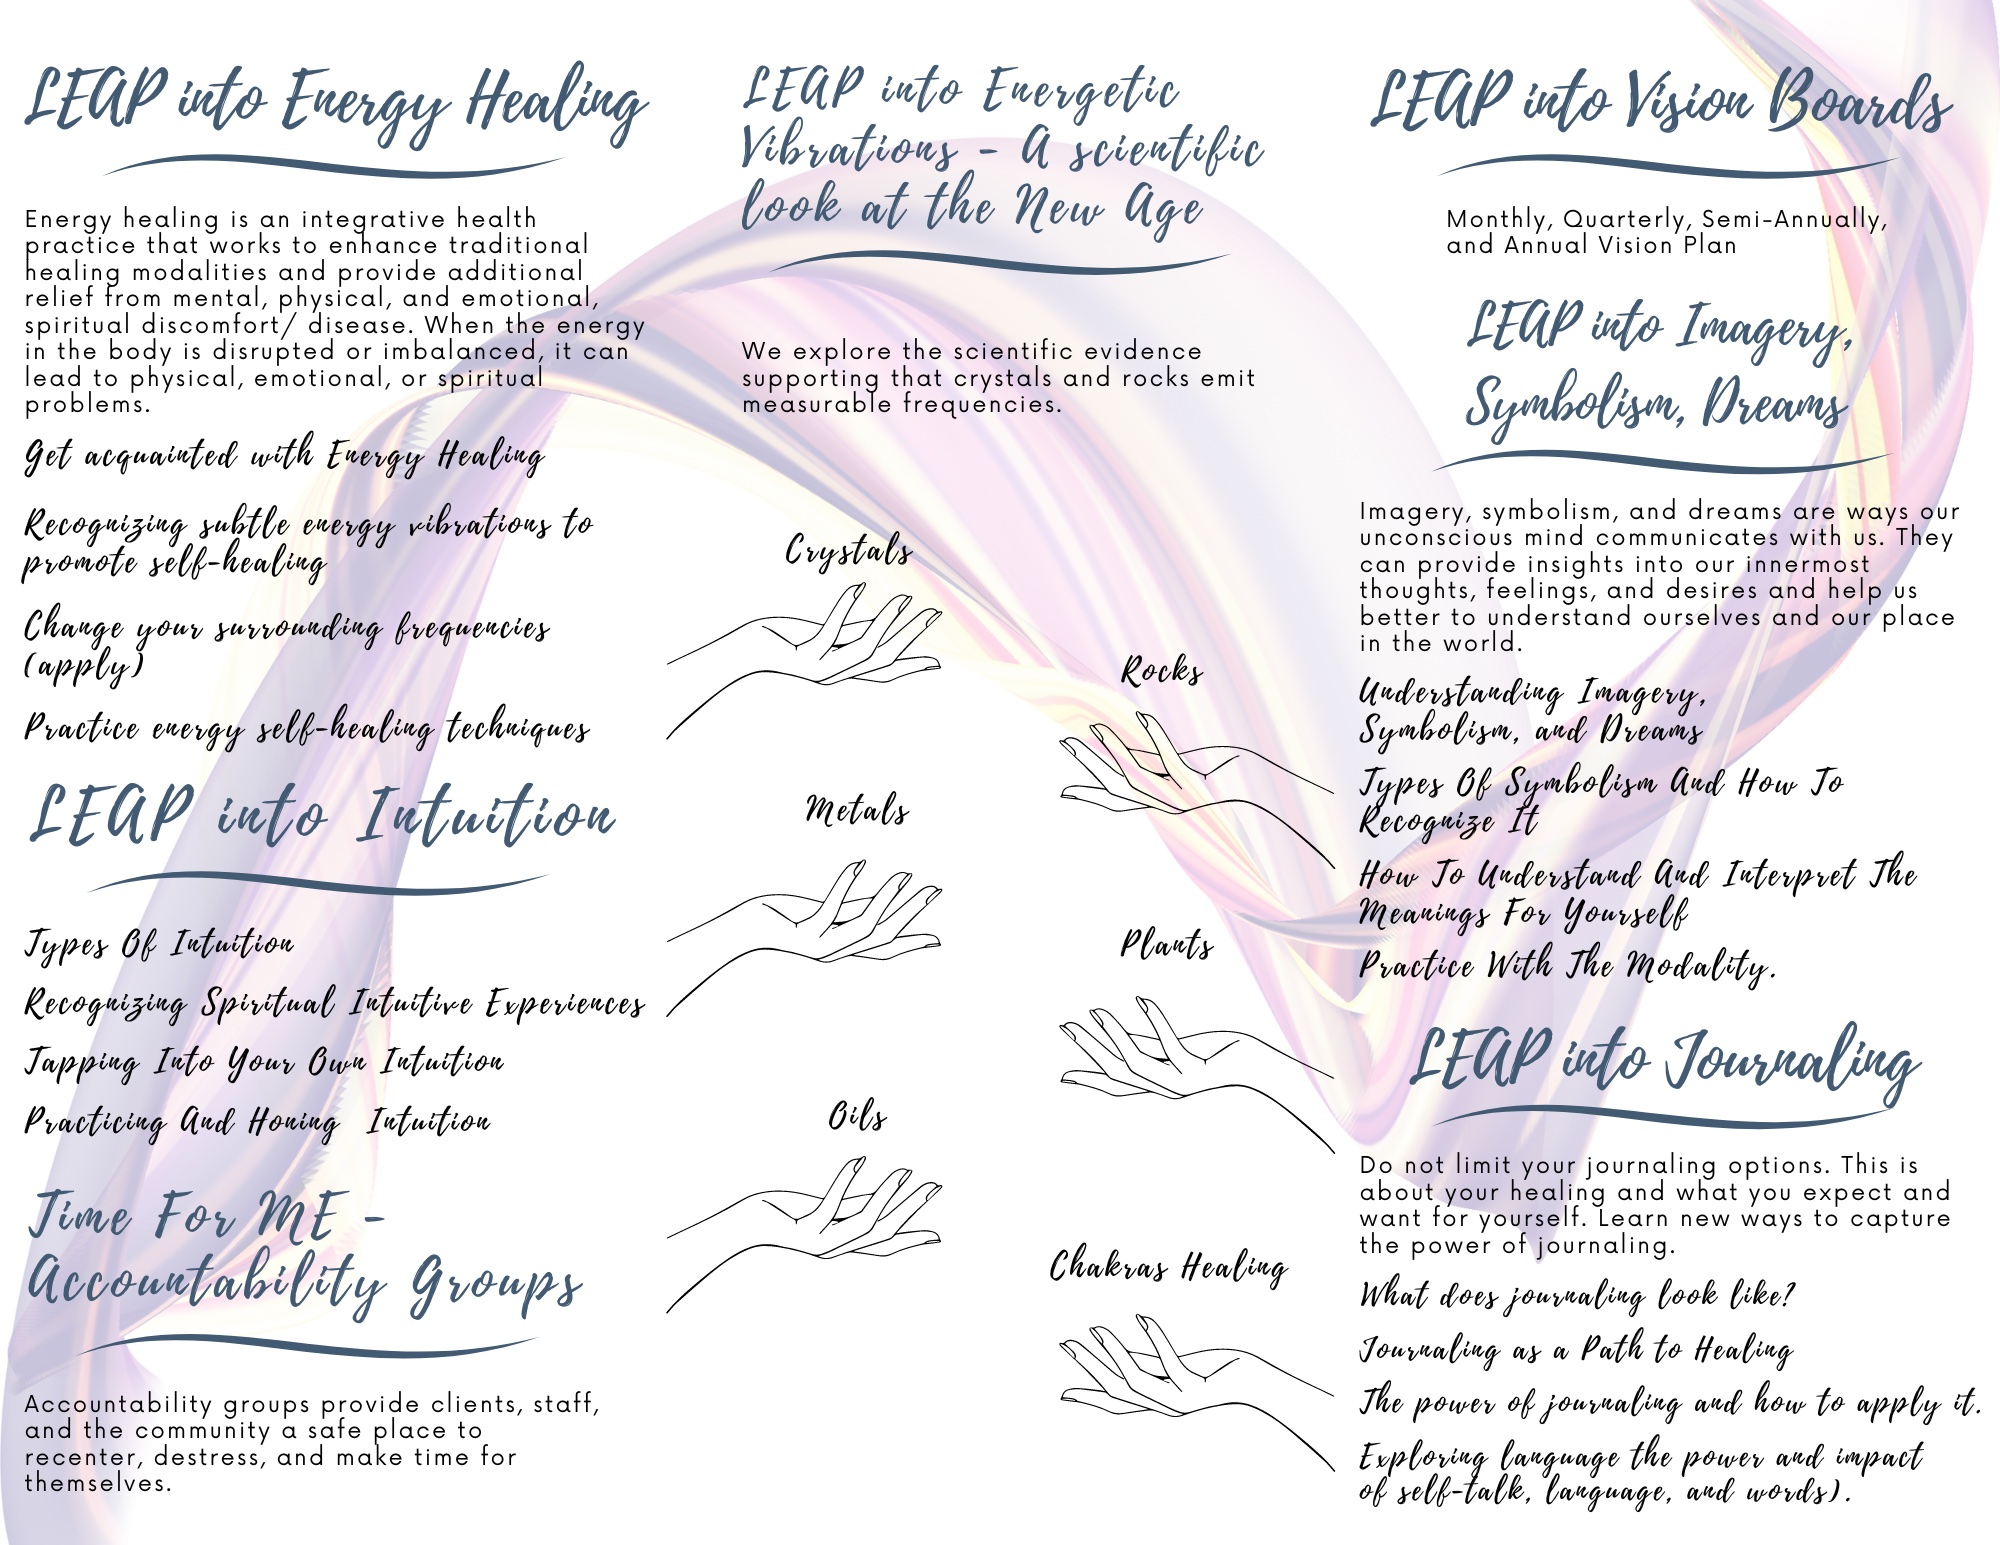 LEAP into Energy Healing
Energy healing is an integrative health
practice that works to enhance traditional
healing modalities and provide additional
relief from mental, physical, and emotional,
spiritual discomfort/ disease. When the energy
in the body is disrupted or imbalanced, it can
lead to physical, emotional, or spiritual
problems.
Get acquainted with Energy Healing
Recognizing subtle energy vibrations to
promote self-healing
Change your surrounding frequencies
(apply)
Practice energy self-healing techniques
LEAP into Intuition
Types Of Intuition
Recognizing Spiritual Intuitive Experiences
Tapping Into Your Own Intuition
Practicing And Honing  Intuition
Time For ME -
Accountability Groups
Accountability groups provide clients, staff,
and the community a safe place to
recenter, destress, and make time for
themselves.
LEAP into Energetic
Vibrations - A scientific
look at the New Age
We explore the scientific evidence
supporting that crystals and rocks emit
measurable frequencies.
Crystals
Rocks
Metals
Plants
Oils
Chakras Healing
LEAP into Vision Boards
Monthly, Quarterly, Semi-Annually,
and Annual Vision Plan
LEAP into Imagery,
Symbolism, Dreams
Imagery, symbolism, and dreams are ways our
unconscious mind communicates with us. They
can provide insights into our innermost
thoughts, feelings, and desires and help us
better to understand ourselves and our place
in the world.
Understanding Imagery,
Symbolism, and Dreams
Types Of Symbolism And How To
Recognize It
How To Understand And Interpret The
Meanings For Yourself
Practice With The Modality.
LEAP into Journaling
Do not limit your journaling options. This is
about your healing and what you expect and
want for yourself. Learn new ways to capture
the power of journaling.
What does journaling look like?
Journaling as a Path to Healing
The power of journaling and how to apply it.
Exploring language the power and impact
of self-talk, language, and words).